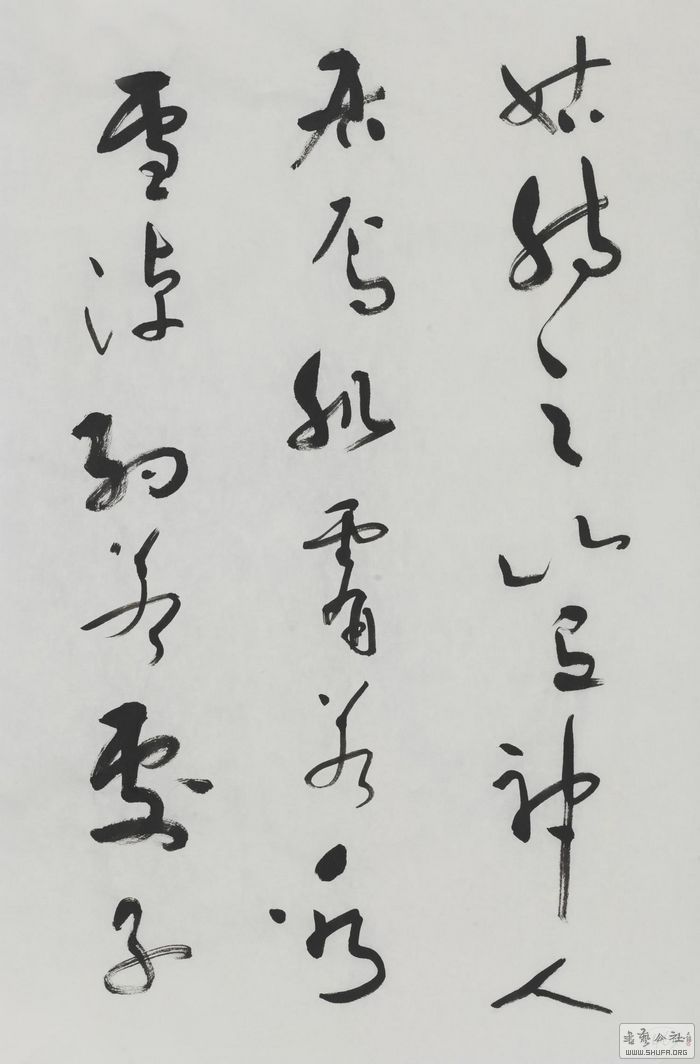 姑射之山有神人
居焉肌膚若冰
雪淖約若處子
書藝公社
WWW.SHUFA.ORG